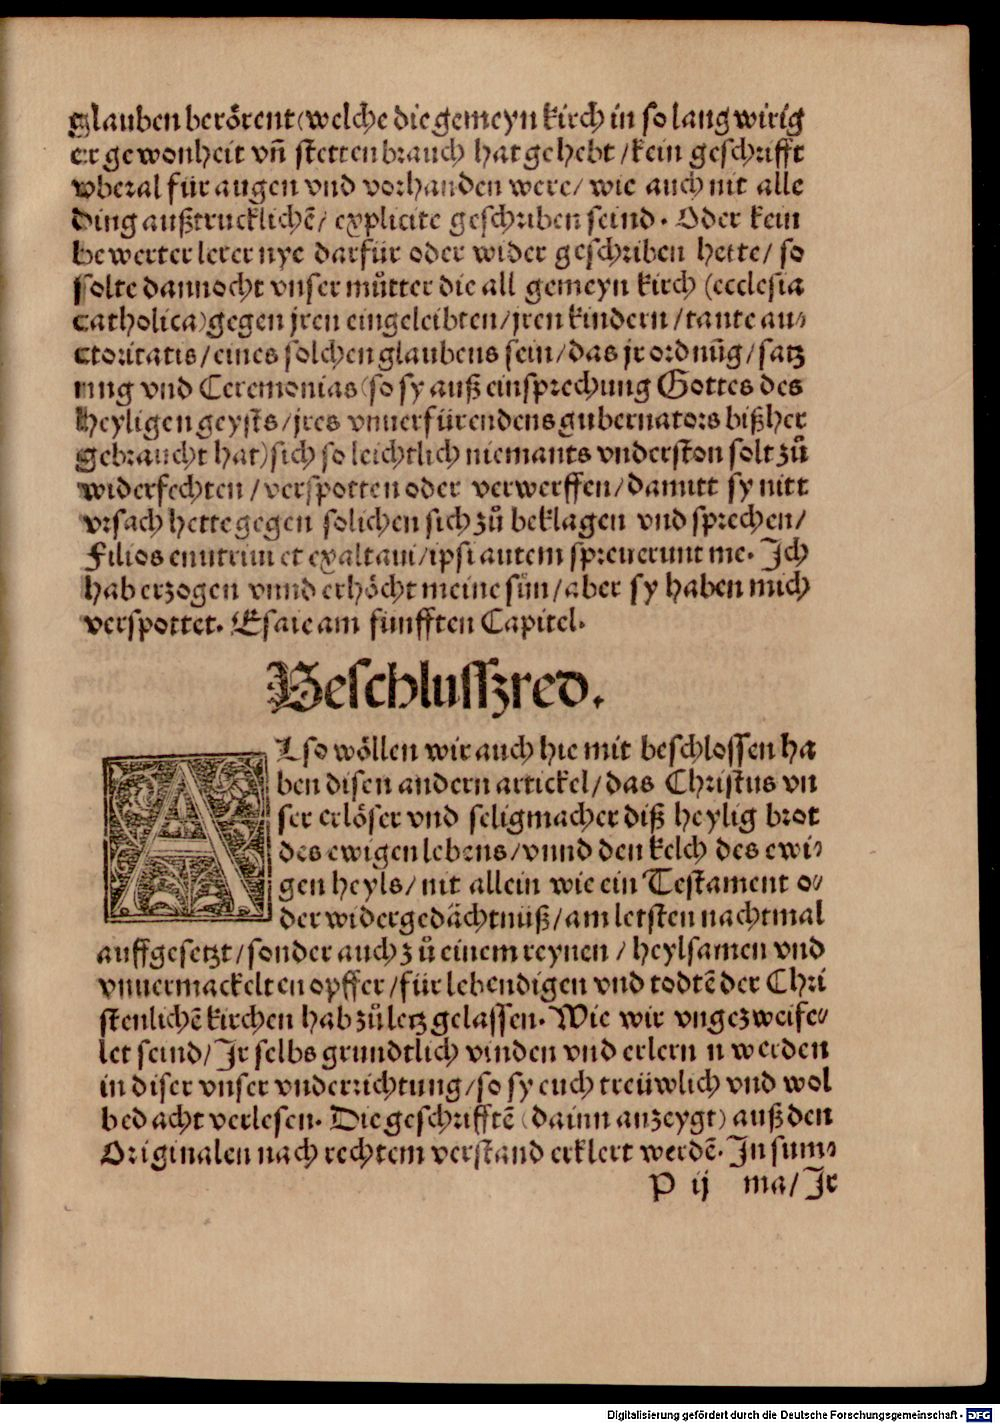 glauben berörent (welche die gemeyn kirch in so lang wirig
er gewonheit vñ stetten brauch hat gehebt / kein geschrifft
wberal für augen vnd vorhanden were / wie auch nit alle
ding außtrucklichē / explicite geschriben seind. Oder kein
bewerter lerer nye darfür oder wider geschriben hette / so
solte dannocht vnser můtter die all gemeyn kirch (ecclesia
catholica) gegen jren eingeleibten / jren kindern / tante au⸗
ctoritatis / eines solchen glaubens sein / das jr ordnūg / satz
ung vnd Ceremonias (so sy auß einsprechung Gottes des
heyligen geysts / jres vnuerfürendens gubernators bißher
gebraucht hat) sich so leichtlich niemants vnderston solt zů
widerfechten / verspotten oder verwerffen / damitt sy nitt
vrsach hette gegen solichen sich zů beklagen vnd sprechen /
Filios enutriui et exaltaui / ipsi autem spreuerunt me. Ich
hab erzogen vnnd erhöcht meine sün / aber sy haben mich
verspottet. Esaie am fünfften Capitel.
Beschlussred.
ALso wöllen wir auch hie mit beschlossen ha
ben disen andern artickel / das Christus vn
ser erlöser vnd seligmacher diß heylig brot
des ewigen lebens / vnnd den kelch des ewi⸗
gen heyls / nit allein wie ein Testament o⸗
der widergedächtnüß / am letsten nachtmal
auffgesetzt / sonder auch zů einem reynen / heylsamen vnd
vnuermackelten opffer / für lebendigen vnd todtē der Chri
stenlichē kirchen hab zů letz gelassen. Wie wir vngezweife⸗
let seind / Ir selbs grundtlich vinden vnd erlern n werden
in diser vnser vnderrichtung / so sy euch treüwlich vnd wol
bedacht verlesen. Die geschrifftē (dainn anzeygt) auß den
Originalen nach rechtem verstand erklert werdē. In sum⸗
P ij ma / Ir
Digitalisierung gefördert durch die Deutsche Forschungsgemeinschaft - DFG